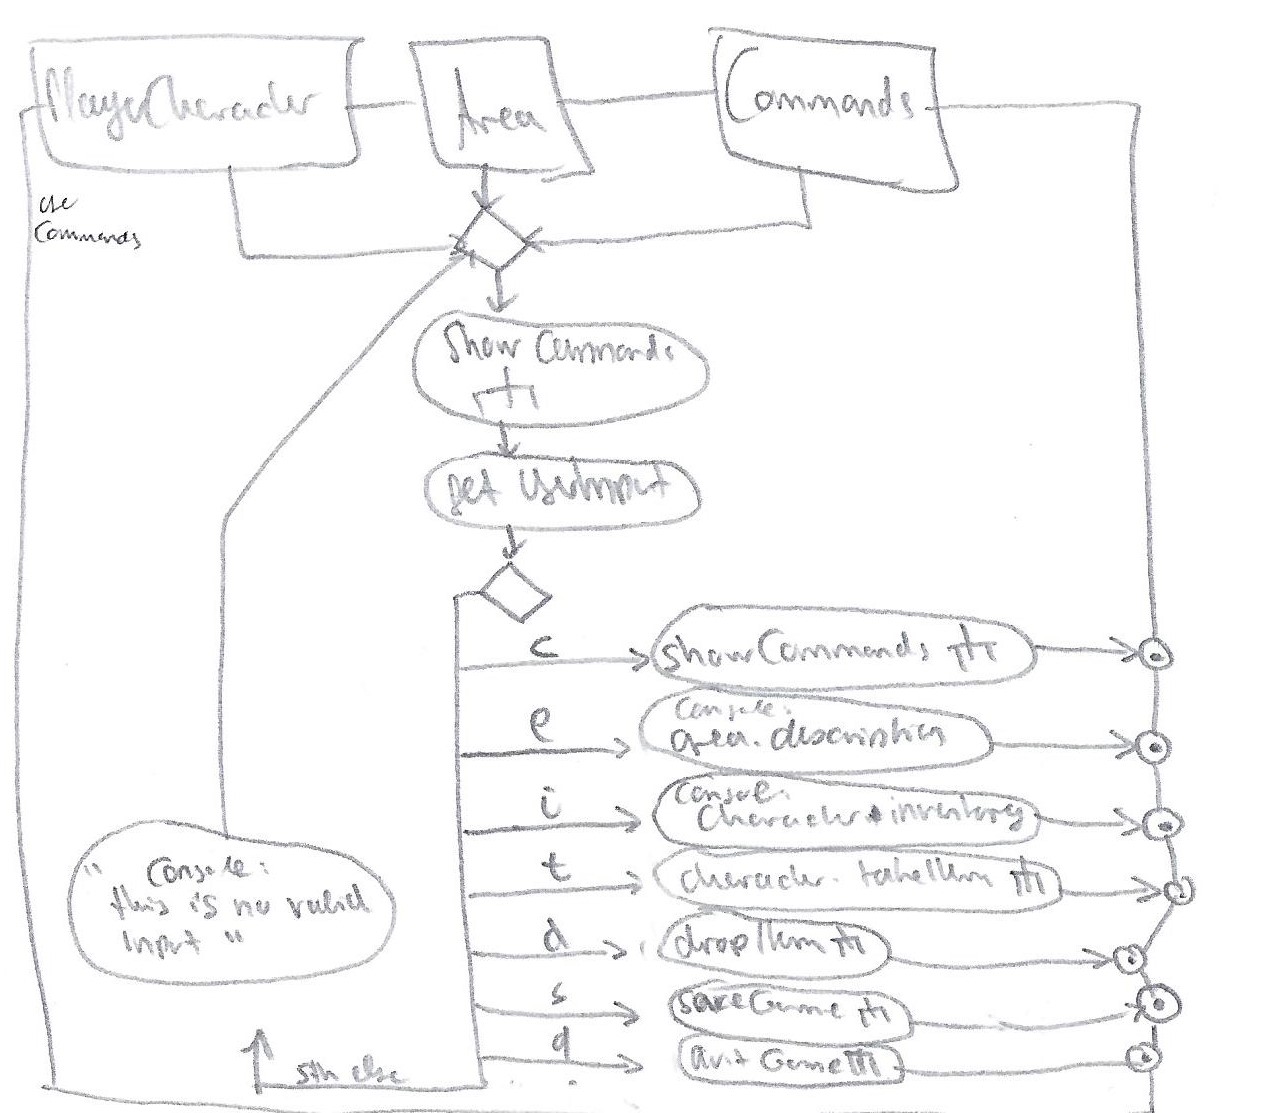 PlayerCharacter
Area
Commands
use
Commands
Show Commands
get UserInput
c
showCommands
e
Console:
area.description
i
Console:
Character.inventory
t
character.takeItem
d
dropItem
s
saveGame
q
quitGame
" Console:
this is no valid
Input "
sth else